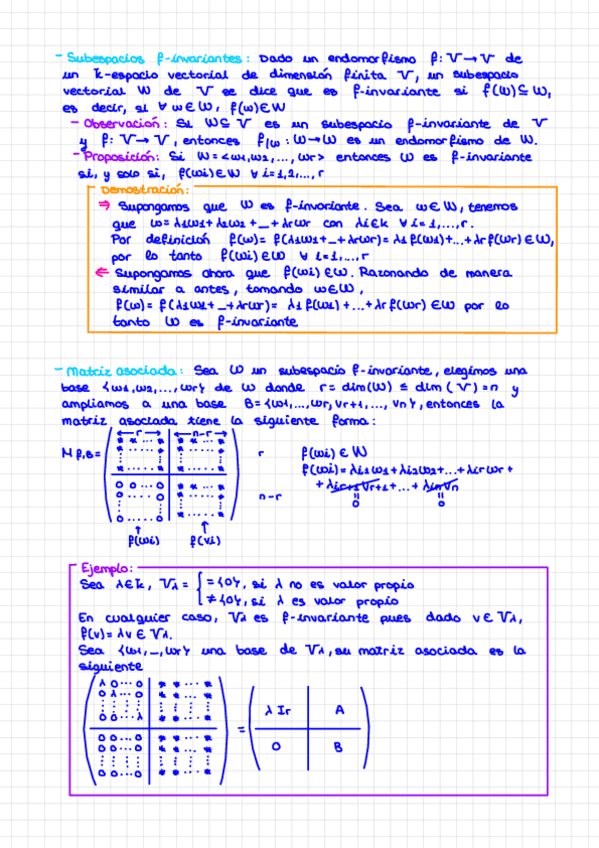 - Subespacios f-invariantes: Dado un endomorfismo f: V → V de
un k-espacio vectorial de dimensión finita V, un subespacio
vectorial W de V se dice que es f-invariante si f(W) ⊆ W,
es decir, si ∀ w ∈ W, f(w) ∈ W
- Observación: Si W ⊆ V es un subespacio f-invariante de V
y f: V → V, entonces f|W : W → W es un endomorfismo de W.
- Proposición: Si W = <w1, w2, ..., wr> entonces W es f-invariante
si, y solo si, f(wi) ∈ W ∀ i = 1, 2, ..., r
Demostración:
⇒ Supongamos que W es f-invariante. Sea w ∈ W, tenemos
que w = λ1w1 + λ2w2 + ... + λrwr con λi ∈ k ∀ i = 1, ..., r.
Por definición f(w) = f(λ1w1 + ... + λrwr) = λ1f(w1) + ... + λrf(wr) ∈ W,
por lo tanto f(wi) ∈ W ∀ i = 1, ..., r
⇐ Supongamos ahora que f(wi) ∈ W. Razonando de manera
similar a antes, tomando w ∈ W,
f(w) = f(λ1w1 + ... + λrwr) = λ1f(w1) + ... + λrf(wr) ∈ W por lo
tanto W es f-invariante
- Matriz asociada: Sea W un subespacio f-invariante, elegimos una
base {w1, w2, ..., wr} de W donde r = dim(W) ≤ dim(V) = n y
ampliamos a una base B = {w1, ..., wr, vr+1, ..., vn}, entonces la
matriz asociada tiene la siguiente forma:
← r → ← n-r →
* * ... * * * ... *
Mf,B = r f(wi) ∈ W
* ..... * * ..... *
f(wi) = λi1w1 + λi2w2 + ... + λirwr +
0 0 ... 0 * * ... * n-r + λir+1vr+1 + ... + λinvn
0 ..... 0 * ..... * 0 0
↑ ↑
f(wi) f(vi)
Ejemplo:
Sea λ ∈ k, Vλ = { = {0}, si λ no es valor propio
≠ {0}, si λ es valor propio
En cualquier caso, Vλ es f-invariante pues dado v ∈ Vλ,
f(v) = λv ∈ Vλ.
Sea {w1, ..., wr} una base de Vλ, su matriz asociada es la
siguiente
λ 0 ... 0 * * ... *
0 λ ... 0 * * ... *
0 0 ... λ * * ... *
= λ Ir A
0 0 ... 0 * * ... * 0 B
0 0 ... 0 * * ... *
0 0 ... 0 * * ... *